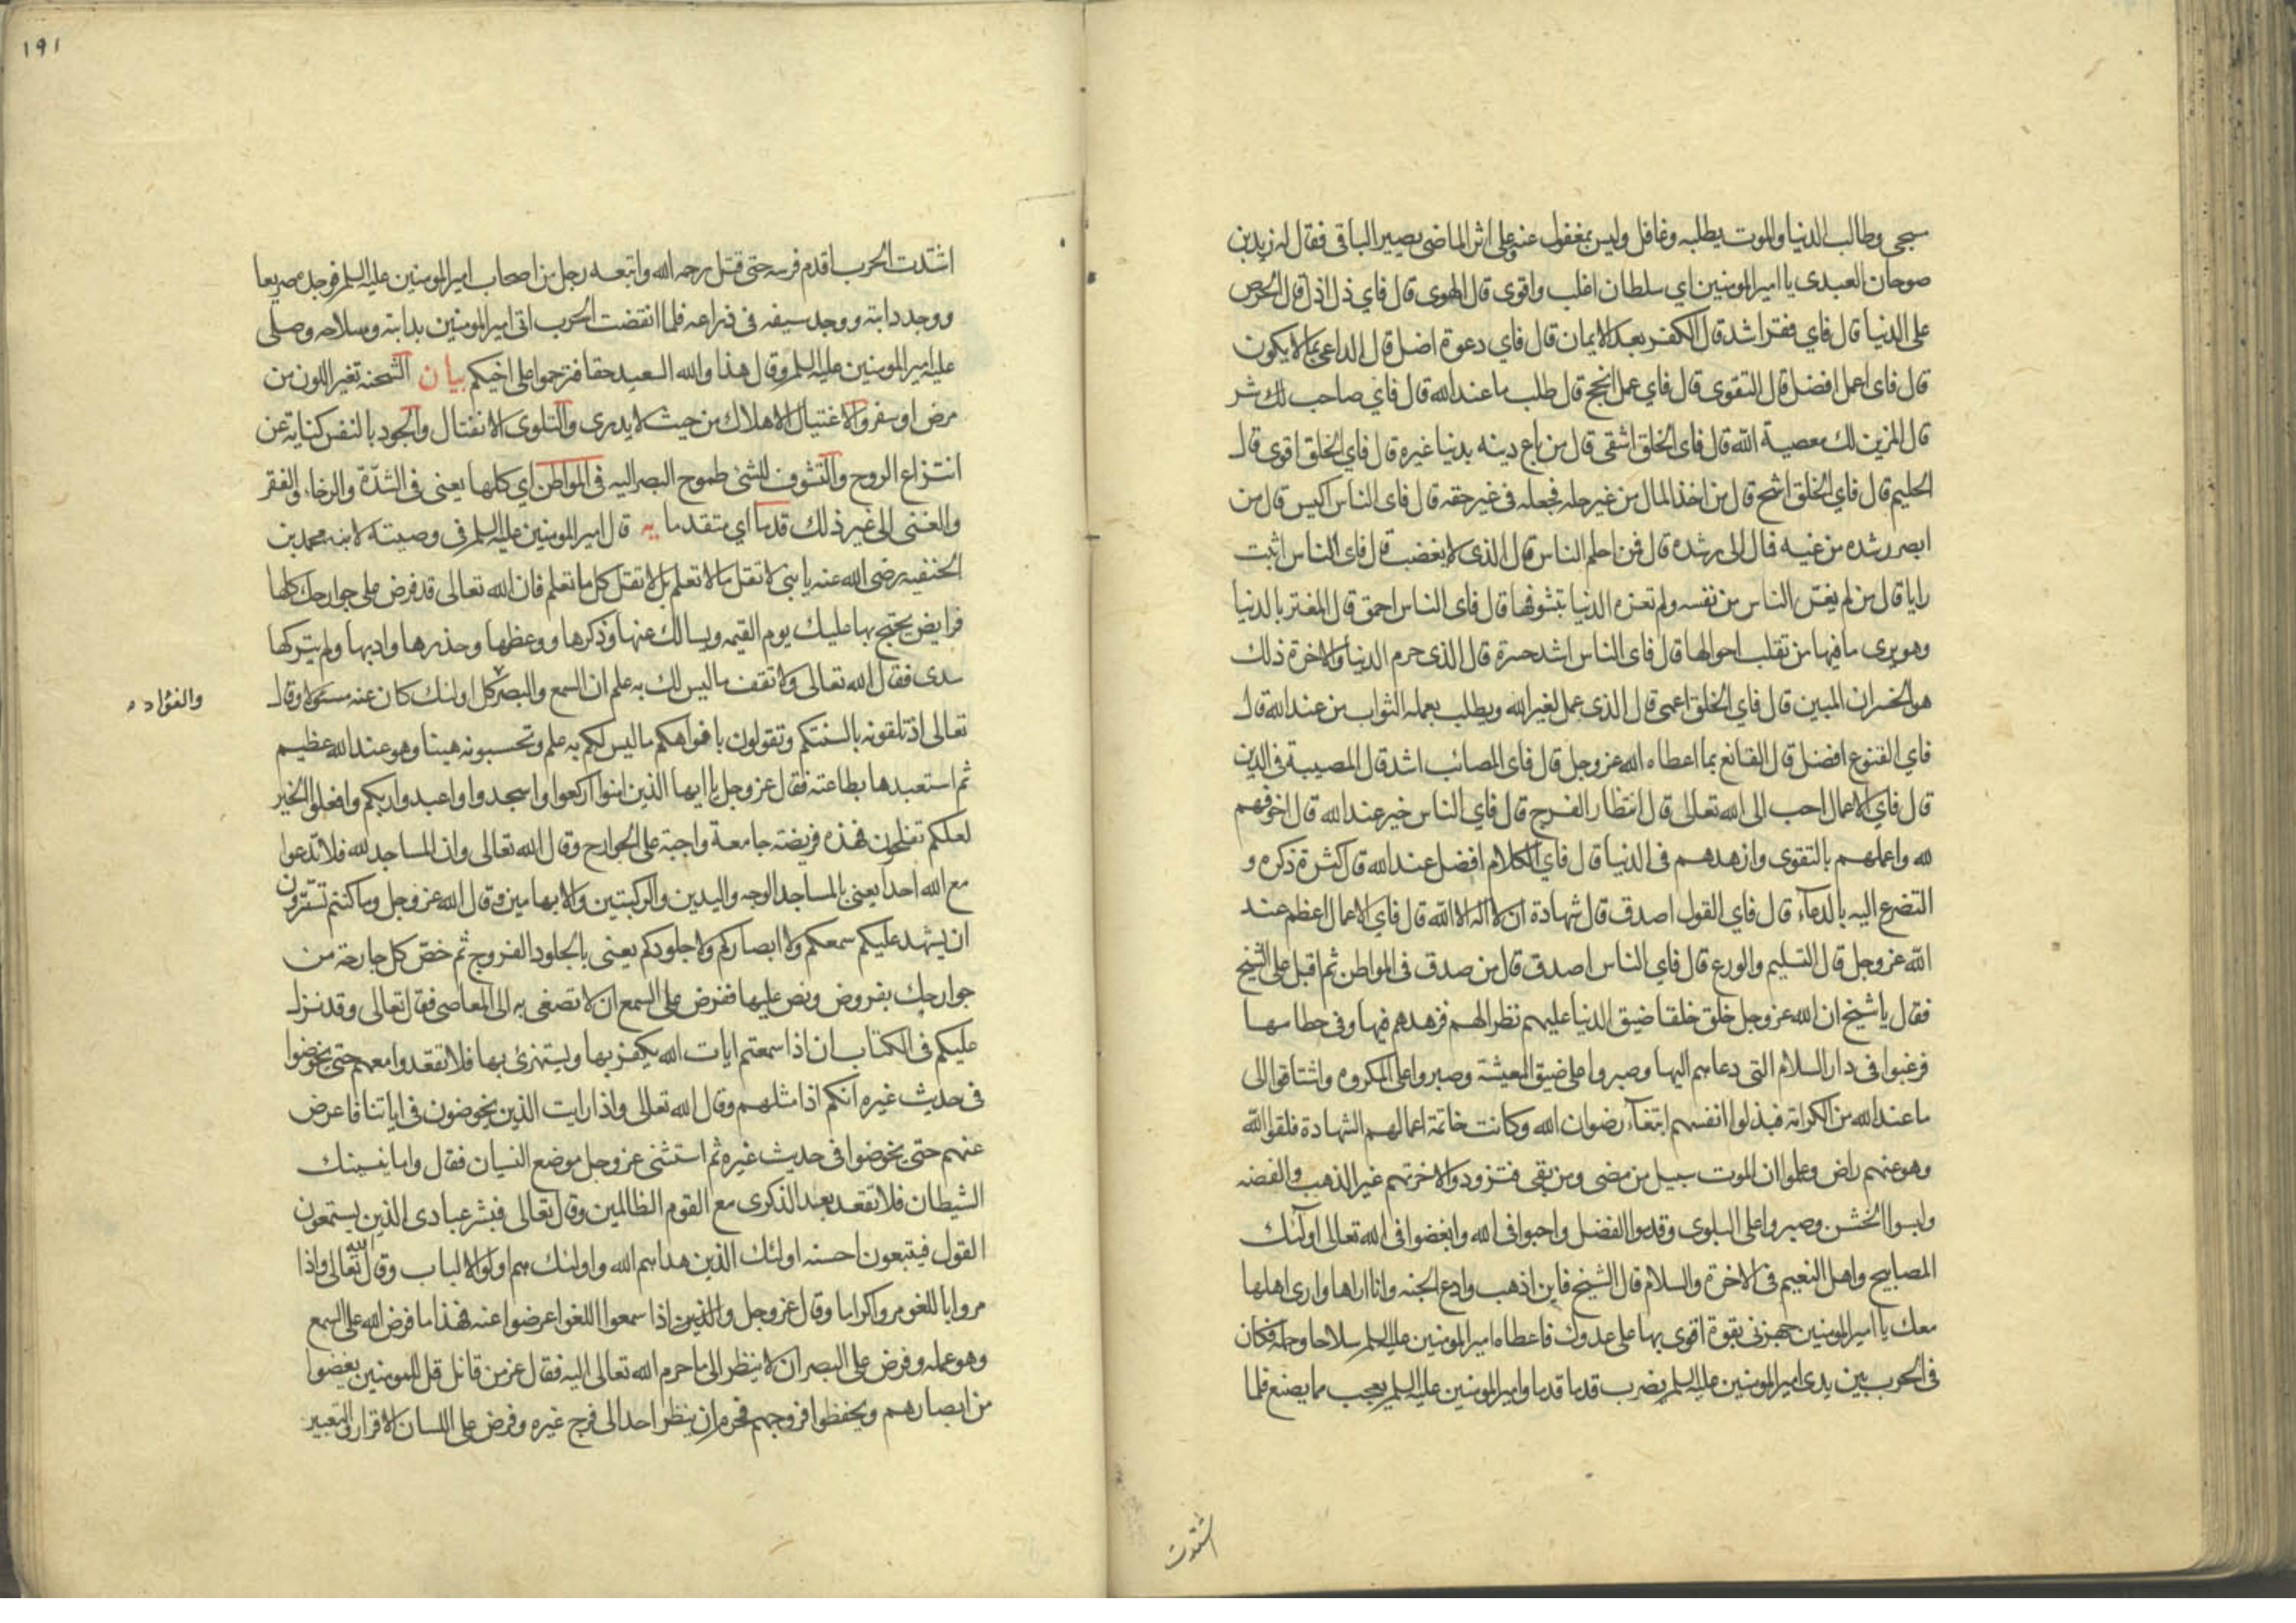 سجى وطالب الدنيا والموت يطلبه وغافل وليس بمغفول عنه وعلى اثر الماضى يصير الباقى فقال له زيد بن
صوحان العبدى يا امير المومنين اي سلطان اغلب واقوى قال الهوى قال فاي ذل اذل قال الحرص
على الدنيا قال فاي فقر اشد قال الكفر بعد الايمان قال فاي دعوة اضل قال الداعى بما لا يكون
قال فاى عمل افضل قال التقوى قال فاي عمل انجح قال طلب ما عند الله قال فاي صاحب لك شر
قال المزين لك معصية الله قال فاى الخلق اشقى قال من باع دينه بدنيا غيره قال فاي الخلق اقوى قال
الحليم قال فاي الخلق اشح قال من اخذ المال من غير حله فجعله فى غير حقه قال فاى الناس اكيس قال من
ابصر رشده من غيه فمال الى رشده قال فمن احلم الناس قال الذى لا يغضب قال فاى الناس اثبت
رايا قال من لم يغره الناس من نفسه ولم تغره الدنيا بتشوفها قال فاى الناس احمق قال المغتر بالدنيا
وهو يرى ما فيها من تقلب احوالها قال فاى الناس اشد حسرة قال الذى حرم الدنيا والاخرة ذلك
هو الخسران المبين قال فاي الخلق اعمى قال الذى عمل لغير الله ويطلب بعمله الثواب من عند الله قال
فاي القنوع افضل قال القانع بما اعطاه الله عز وجل قال فاى المصائب اشد قال المصيبة فى الدين
قال فاي الاعمال احب الى الله تعالى قال انتظار الفرج قال فاي الناس خير عند الله قال اخوفهم
لله واعملهم بالتقوى وازهدهم فى الدنيا قال فاي الكلام افضل عند الله قال كثرة ذكره و
التضرع اليه بالدعاء قال فاي القول اصدق قال شهادة ان لا اله الا الله قال فاي الاعمال اعظم عند
الله عز وجل قال التسليم والورع قال فاي الناس اصدق قال من صدق فى المواطن ثم اقبل على الشيخ
فقال يا شيخ ان الله عز وجل خلق خلقا ضيق الدنيا عليهم نظرا لهم فزهدهم فيها وفى حطامها
فرغبوا فى دار السلام التى دعاهم اليها وصبروا على ضيق المعيشة وصبروا على المكروه واشتاقوا الى
ما عند الله من الكرامة فبذلوا انفسهم ابتغاء رضوان الله وكانت خاتمة اعمالهم الشهادة فلقوا الله
وهو عنهم راض وعلموا ان الموت سبيل من مضى ومن بقى فتزودوا لاخرتهم غير الذهب والفضه
ولبسوا الخشن وصبروا على البلوى وقدموا الفضل واحبوا فى الله وابغضوا فى الله تعالى اولئك
المصابيح واهل النعيم فى الاخرة والسلام قال الشيخ فاين اذهب وادع الجنه وانا اراها وارى اهلها
معك يا امير المومنين جهزنى بقوة اقوى بها على عدوك فاعطاه امير المومنين عليه السلم سلاحا وحمله فكان
فى الحرب بين يدى امير المومنين عليه السلم يضرب قدما قدما وامير المومنين عليه السلم يعجب مما يصنع فلما
اشتدت
١٩١
اشتدت الحرب اقدم فرسه حتى قتل رحمه الله واتبعه رجل من اصحاب امير المومنين عليه السلم فوجده صريعا
ووجد دابته ووجد سيفه فى ذراعه فلما انقضت الحرب اتى امير المومنين بدابته وسلاحه وصلى
عليه امير المومنين عليه السلم وقال هذا والله السعيد حقا فترحموا على اخيكم بيان الشحنه تغير اللون من
مرض او سفر والاغتيال الاهلاك من حيث لا يدرى والتلوى الانفتال والجود بالنفس كناية عن
انتزاع الروح والتشوف للشئ طموح البصر اليه فى المواطن اي كلها يعنى فى الشدة والرخاء والفقر
والغنى الى غير ذلك قدما اي متقدما يه قال امير المومنين عليه السلم فى وصيته لابنه محمد بن
الحنفيه رضى الله عنه يا بنى لا تقل ما لا تعلم بل لا تقل كل ما تعلم فان الله تعالى قد فرض على جوارحك كلها
فرايض يحتج بها عليك يوم القيمه ويسالك عنها وذكرها ووعظها وحذرها وادبها ولم يتركها
سدى فقال الله تعالى ولا تقف ما ليس لك به علم ان السمع والبصر كل اولئك كان عنه مسئولا وقال
والفؤاد
تعالى اذ تلقونه بالسنتكم وتقولون بافواهكم ما ليس لكم به علم وتحسبونه هينا وهو عند الله عظيم
ثم استعبدها بطاعته فقال عز وجل يا ايها الذين امنوا اركعوا واسجدوا واعبدوا ربكم وافعلوا الخير
لعلكم تفلحون فهذه فريضة جامعة واجبة على الجوارح وقال الله تعالى وان المساجد لله فلا تدعوا
مع الله احدا يعنى بالمساجد الوجه واليدين والركبتين والابهامين وقال الله عز وجل وما كنتم تستترون
ان يشهد عليكم سمعكم ولا ابصاركم ولا جلودكم يعنى بالجلود الفروج ثم خص كل جارحة من
جوارحك بفروض ونص عليها ففرض على السمع ان لا تصغى به الى المعاصى فقال تعالى وقد نزل
عليكم فى الكتاب ان اذا سمعتم ايات الله يكفر بها ويستهزئ بها فلا تقعدوا معهم حتى يخوضوا
فى حديث غيره انكم اذا مثلهم وقال الله تعالى واذا رايت الذين يخوضون فى اياتنا فاعرض
عنهم حتى يخوضوا فى حديث غيره ثم استثنى عز وجل موضع النسيان فقال واما ينسينك
الشيطان فلا تقعد بعد الذكرى مع القوم الظالمين وقال تعالى فبشر عبادى الذين يستمعون
القول فيتبعون احسنه اولئك الذين هداهم الله واولئك هم اولوا الالباب وقال الله تعالى واذا
مروا باللغو مروا كراما وقال عز وجل والذين اذا سمعوا اللغو اعرضوا عنه فهذا ما فرض الله على السمع
وهو عمله وفرض على البصر ان لا ينظر الى ما حرم الله تعالى اليه فقال عز من قائل قل للمومنين يغضوا
من ابصارهم ويحفظوا فروجهم فحرم ان ينظر احد الى فرج غيره وفرض على اللسان الاقرار والتعبير